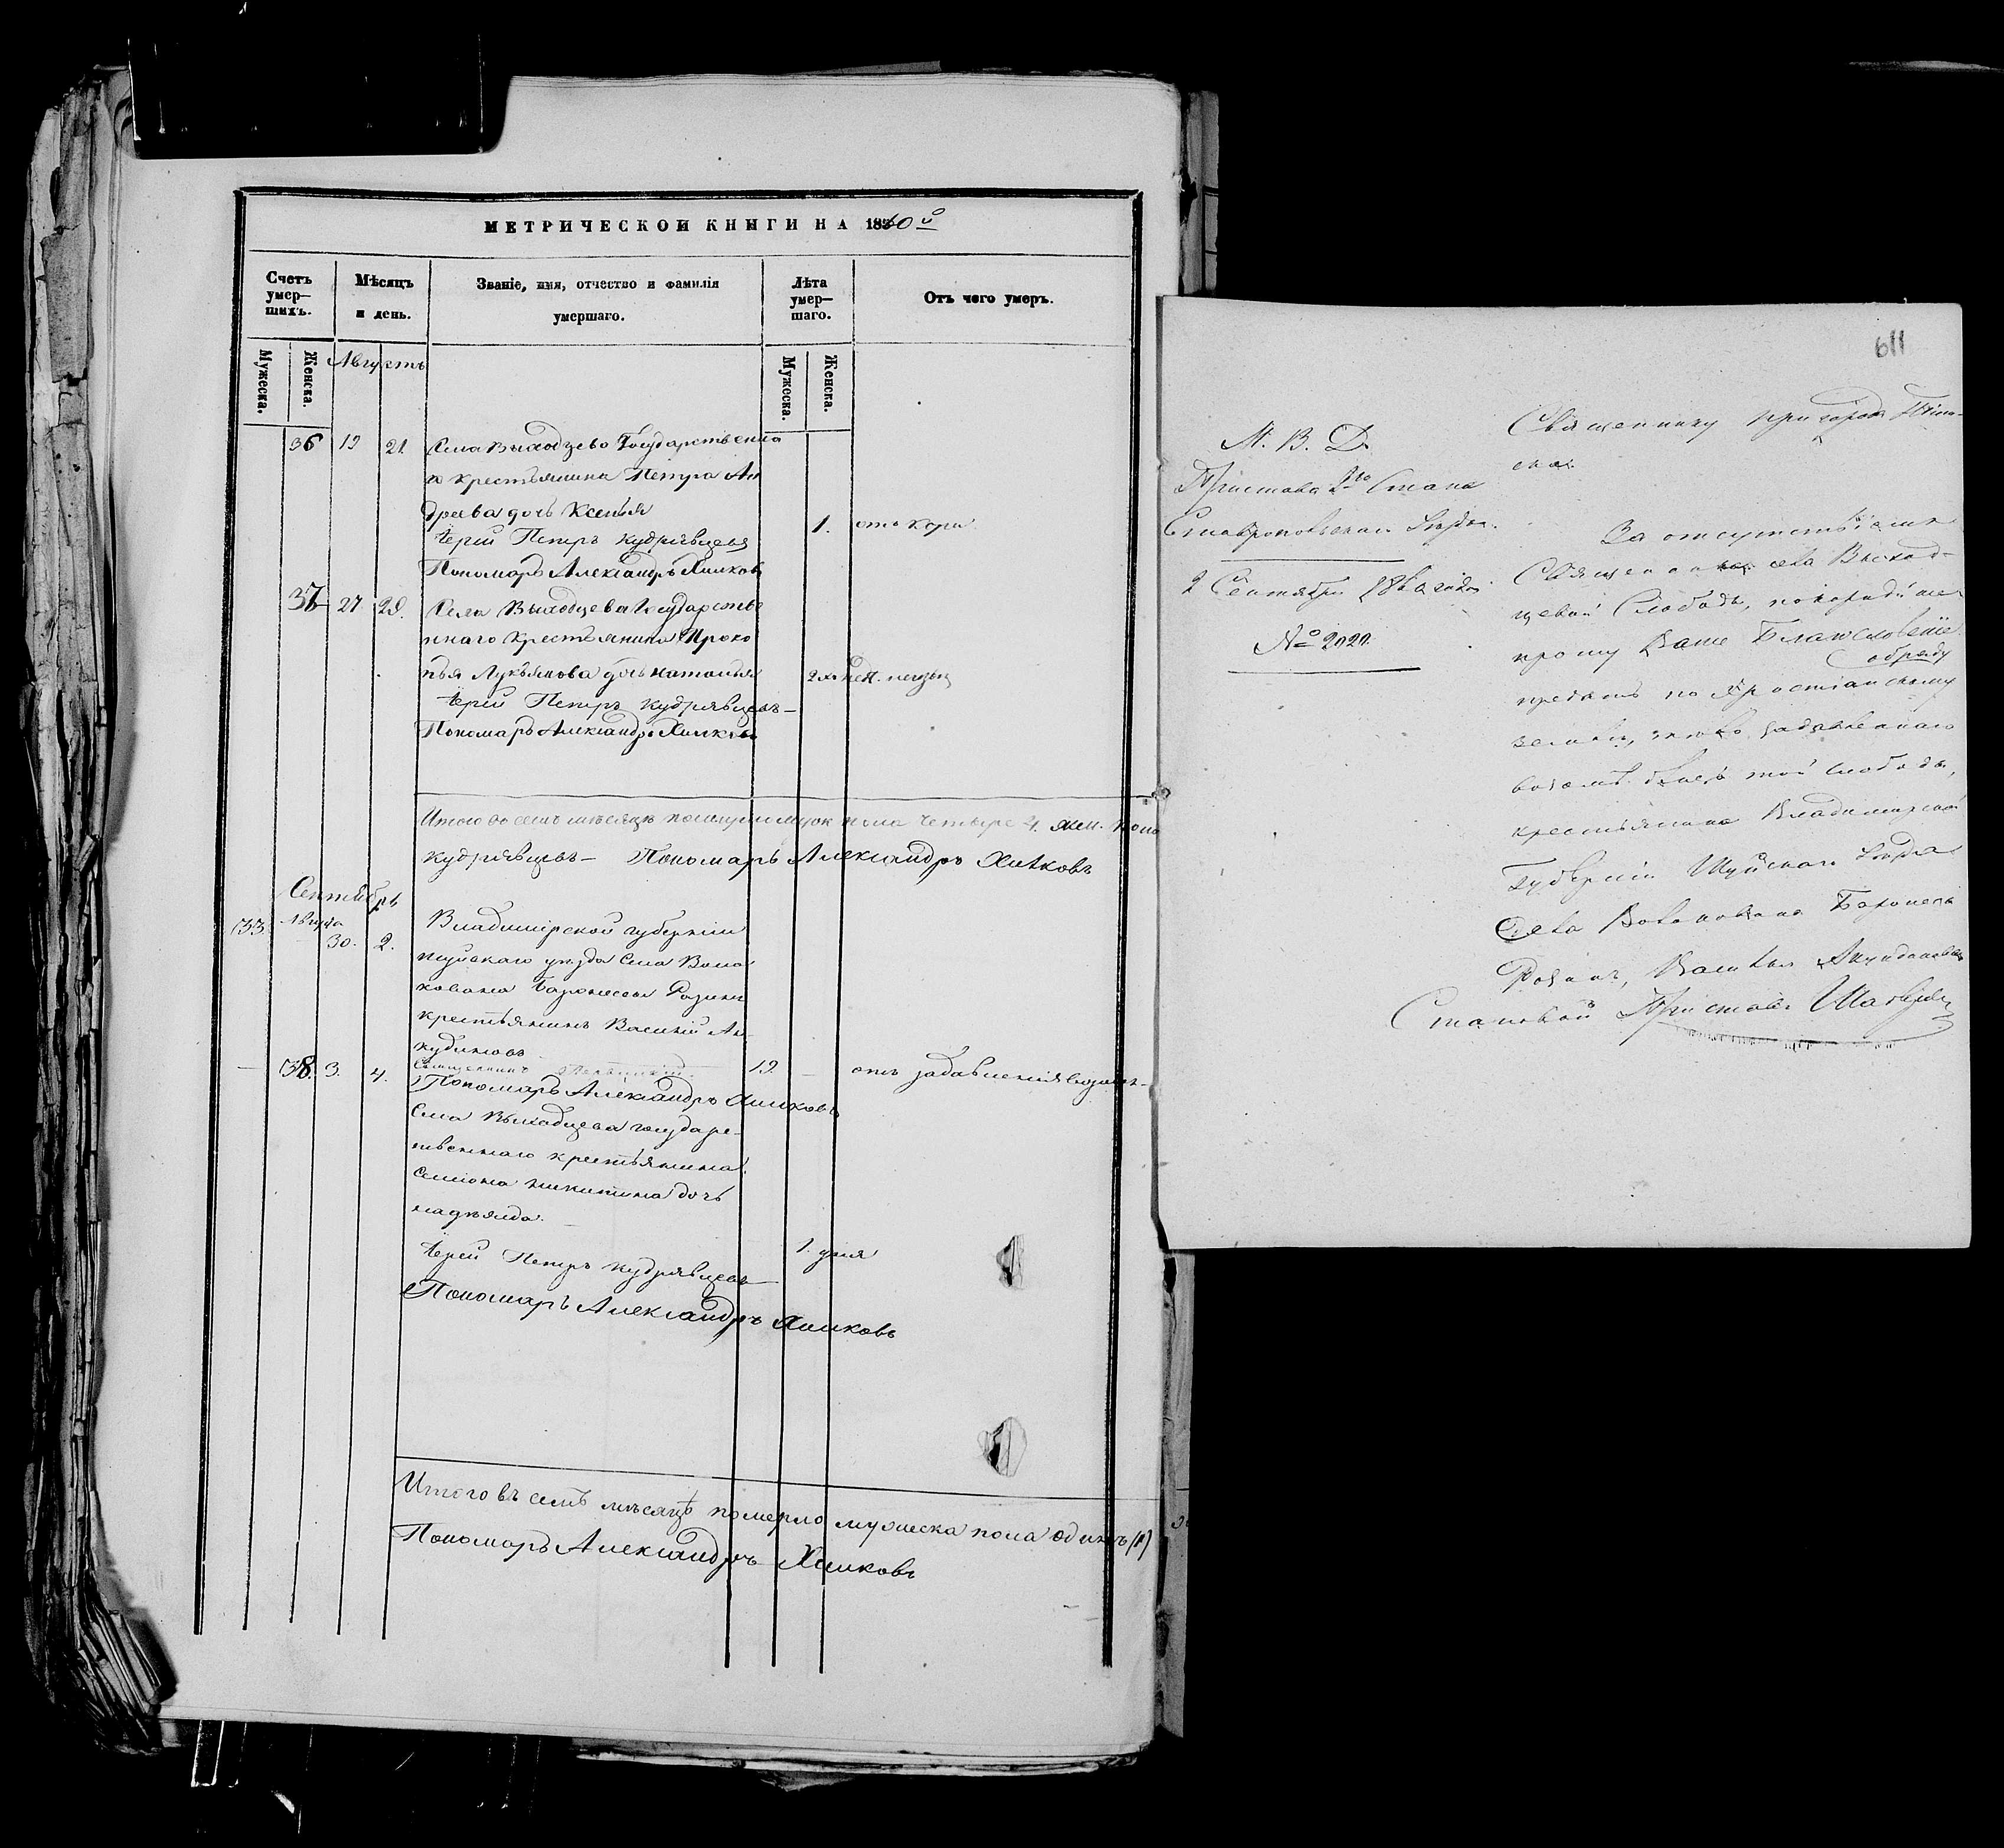 МЕТРИЧЕСКОЙ КНИГИ НА 1860й
Счетъ умер—шихъ.
Мѣсяцъ и день.
Званіе, имя, отчество и фамилія умершаго.
Лѣта умер—шаго.
Отъ чего умеръ.
Мужеска.
Женска.
Августъ
Мужеска.
Женска.
36 19 21. Села Выходцево Государственна
го крестьянина Петра Ан
дреева дочь Ксенія 1. отъ кори
Іерей Петръ Кудрявцевъ
Пономарь Александръ Хилковъ
37 27 29. Села Выходцева Государстве
ннаго крестьянина Проко
пья Лукьянова дочь Наталья
Іерей Петръ Кудрявцевъ—
Пономарь Александръ Хилковъ
Итого въ семъ мѣсяцѣ муж. пола четыре 4. жен. пола
Кудрявцевъ— Пономарь Александръ Хилковъ
Сентябрь
33. Августа 30. 2. Владимірской губерніи
шуйскаго уѣзда села
Баронессы Розинъ
крестьянинъ Василій Ан
кудиновъ
Священникъ
19. — отъ задавленія
Пономарь Александръ Хилковъ
— 38. 3. 4.
Села Выходцева государс-
твеннаго крестьянина
Семіона Никитина дочь
1. дня
Іерей Петръ Кудрявцевъ
Пономарь Александръ Хилковъ
Итого въ семъ мѣсяцѣ померло мужеска пола одинъ (1)
Пономарь Александръ Хилковъ
611
М. В. Д.
Пристава 2го Стана
Ставропольскаго Уѣзда.
2 Сентября 1860 года
№ 2020
Священнику пригорода
За отсутствіемъ
Священника села Выход-
цевой Слободы, покорнѣйше
прошу Ваше Благословеніе
обряду
предать по Христіанскому
земли, тѣло задавленнаго
той слободы,
крестьянина Владимірской
Губерніи Шуйскаго Уѣзда
Села Баронессы
Розинъ, Василья Анкудинова
Становой Приставъ